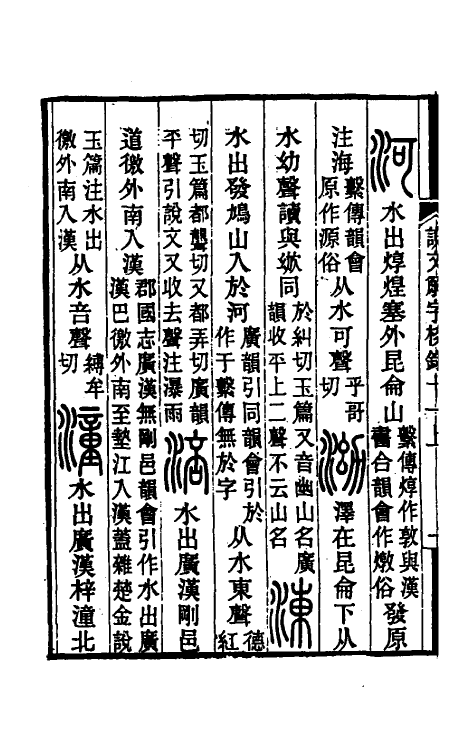 說文解字校錄十一上 一
河 水出焞煌塞外昆侖山 繫傳焞作敦與漢書合韻會作燉俗 發原
注海 繫傳韻會原作源俗 从水可聲 乎哥切 泑 澤在昆侖下从
水幼聲讀與同 於糾切玉篇又音幽山名廣韻收平上二聲不云山名 涷
水出發鳩山入於河 廣韻引同韻會引於作于繫傳無於字 从水東聲 德紅
切玉篇都龔切又都弄切廣韻平聲引說文又收去聲注瀑雨 涪 水出廣漢剛邑
道徼外南入漢 郡國志廣漢無剛邑韻會引作水出廣漢巴徼外南至墊江入漢蓋雜楚金說
玉篇注水出徼外南入漢 从水音聲 縛牟切 潼 水出廣漢梓潼北